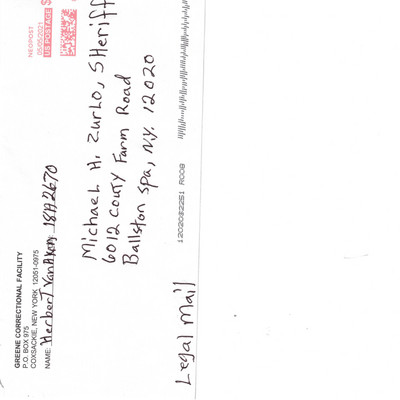 GREENE CORRECTIONAL FACILITY
P.O. BOX 975
COXSACKIE, NEW YORK 12051-0975
NAME: Herbert VanAken 18A2670
NEOPOST
05/05/2021
US POSTAGE $
Michael H. Zurlo, SHeriff
6012 County Farm Road
Ballston Spa, N.Y. 12020
12020$2251 R008
Legal Mail